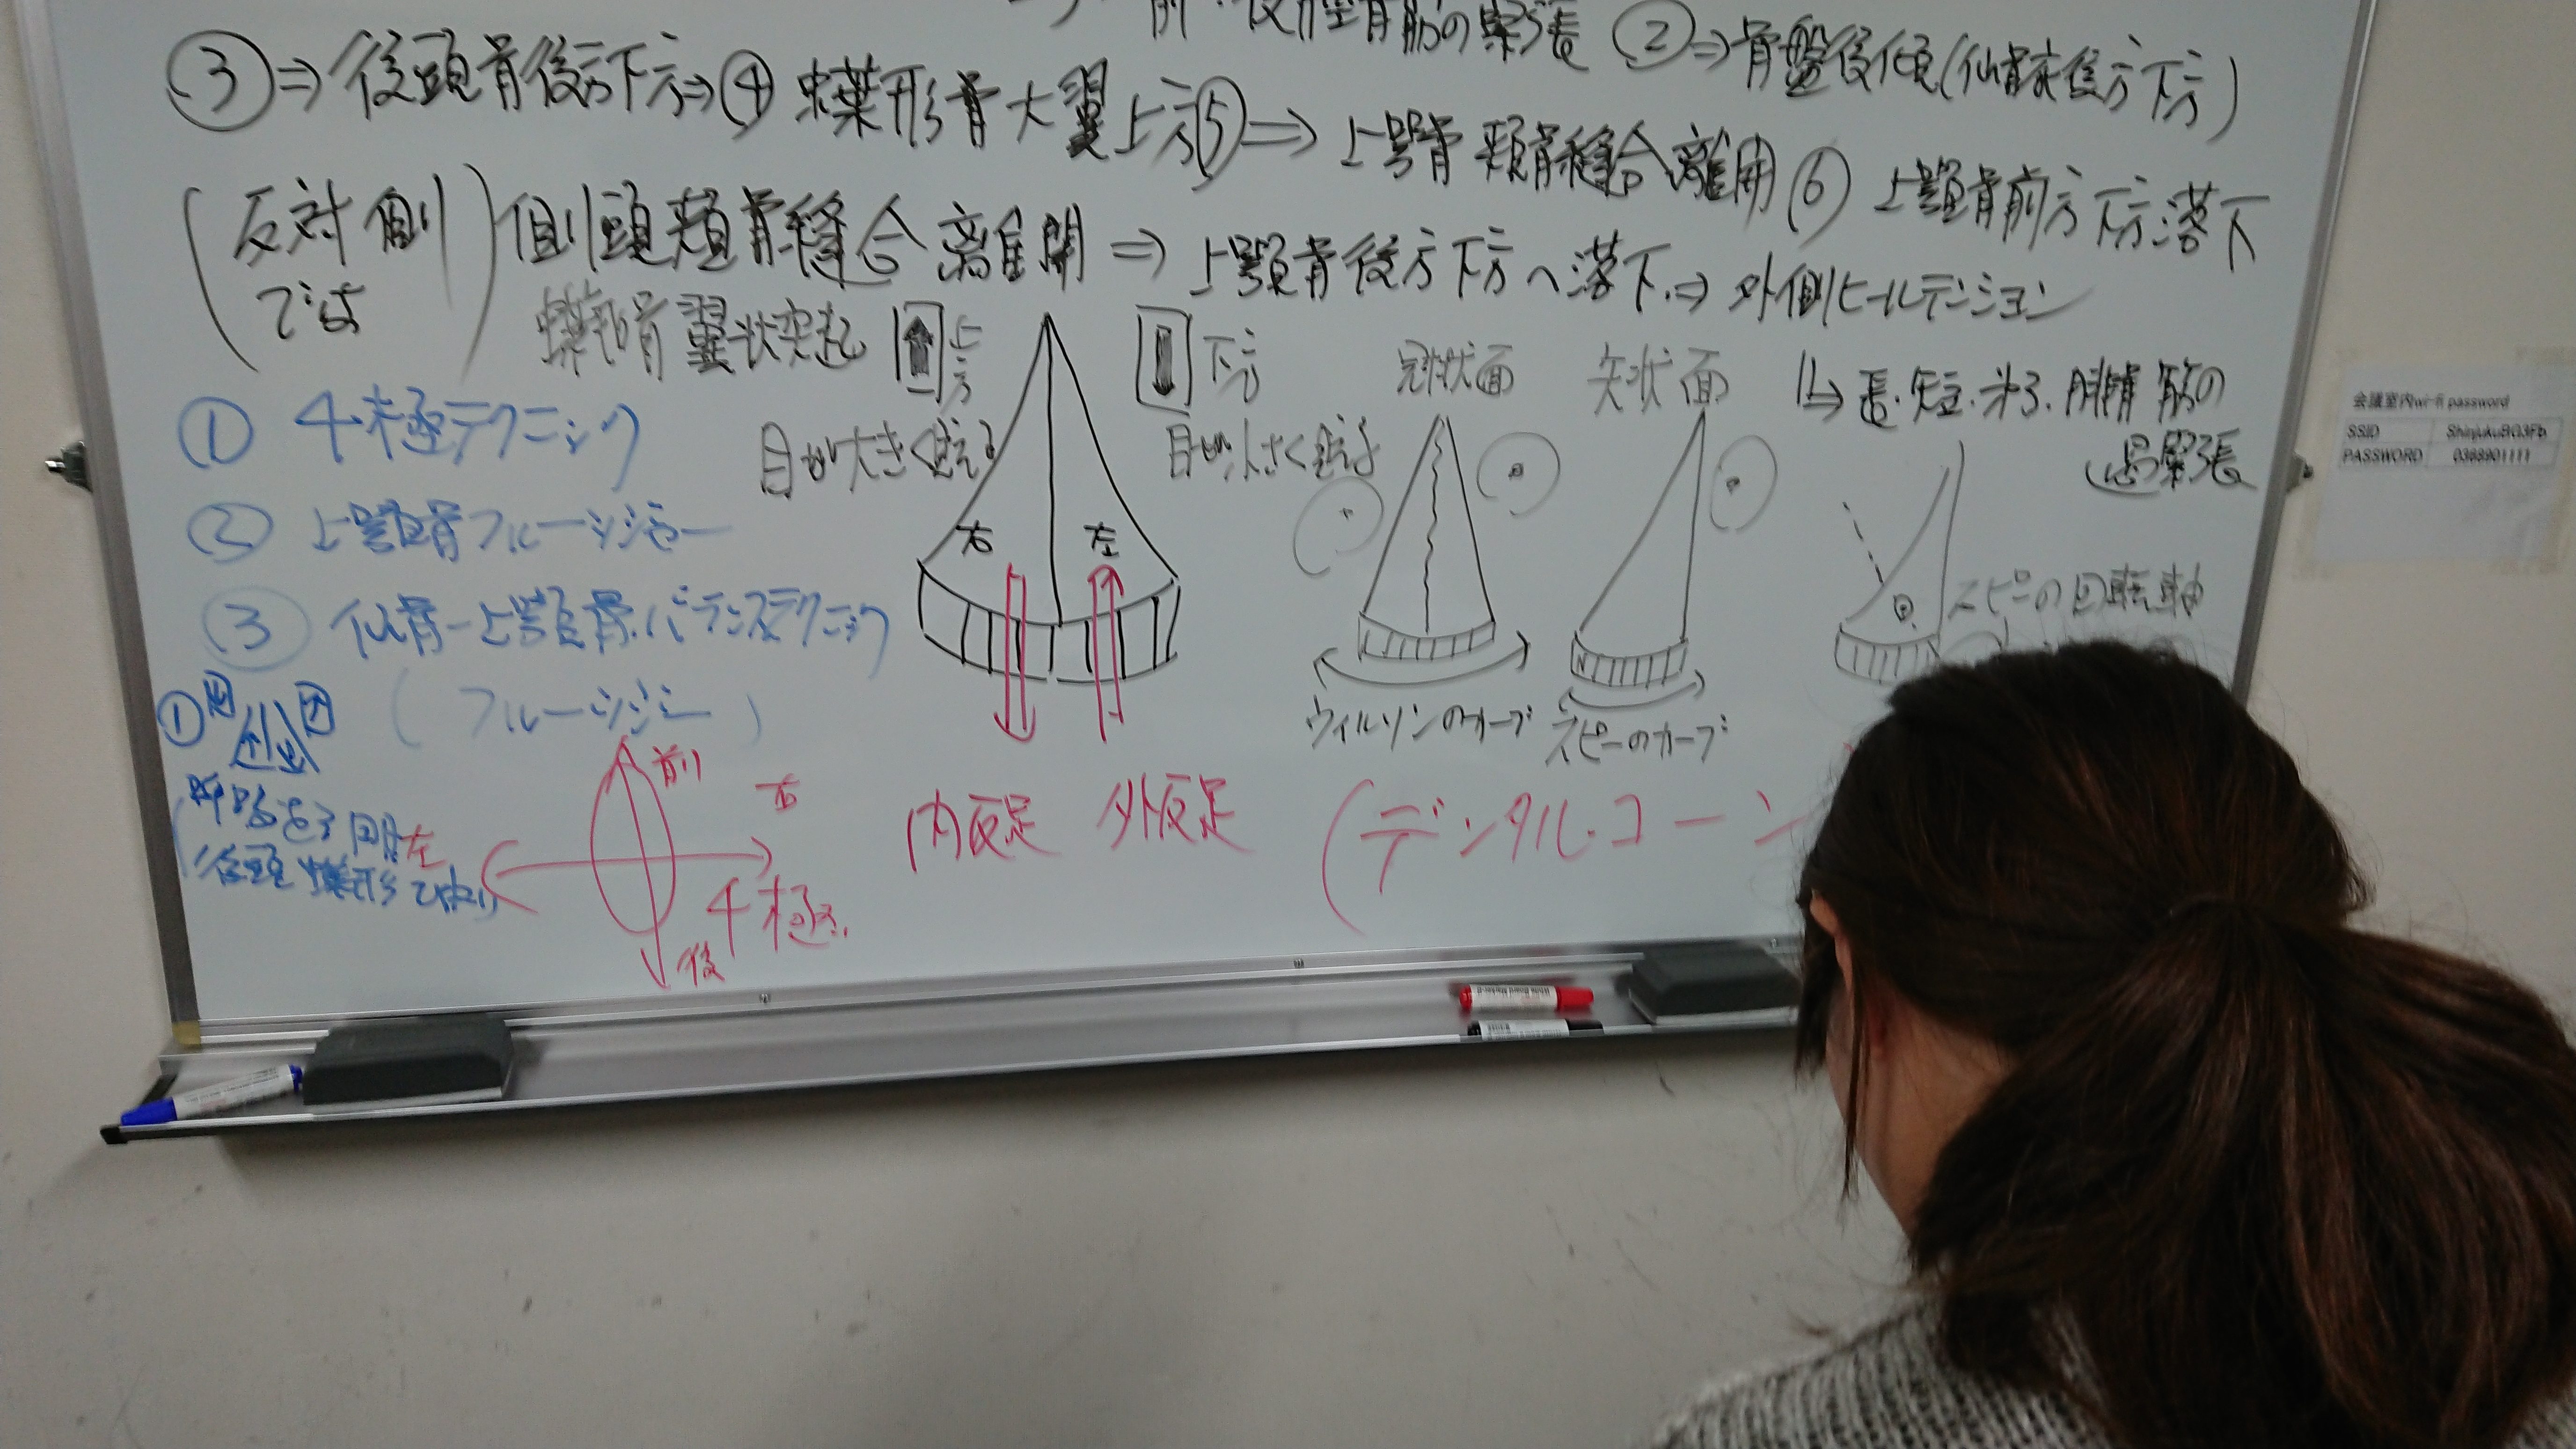 前・後脛骨筋の緊張 ②⇒骨盤後傾(仙骨底後方下方)
③⇒後頭骨後方下方⇒④ 蝶形骨大翼上方⑤⇒上顎骨頬骨縫合離開⑥上顎骨前方下方落下
(反対側では)側頭頬骨縫合離開⇒上顎骨後方下方へ落下⇒外側ヒールテンション
⇒長・短・第3・腓骨筋の
過緊張
蝶形骨翼状突起 上方
下方
冠状面
矢状面
目が大きく見える
目が小さく見える
① 4極テクニック
② 上顎骨フルーシジョー
③ 仙骨ー上顎骨バランステクニック
(フルーシジー)
右
左
ウィルソンのカーブ
スピーのカーブ
スピーの回転軸
①
呼吸を3回
後頭 蝶形
前
右
左
後
4極
内反足 外反足
(デンタル・コーン
会議室内wi-fi password
SSID ShinjukuBG3Fb
PASSWORD 0368901111